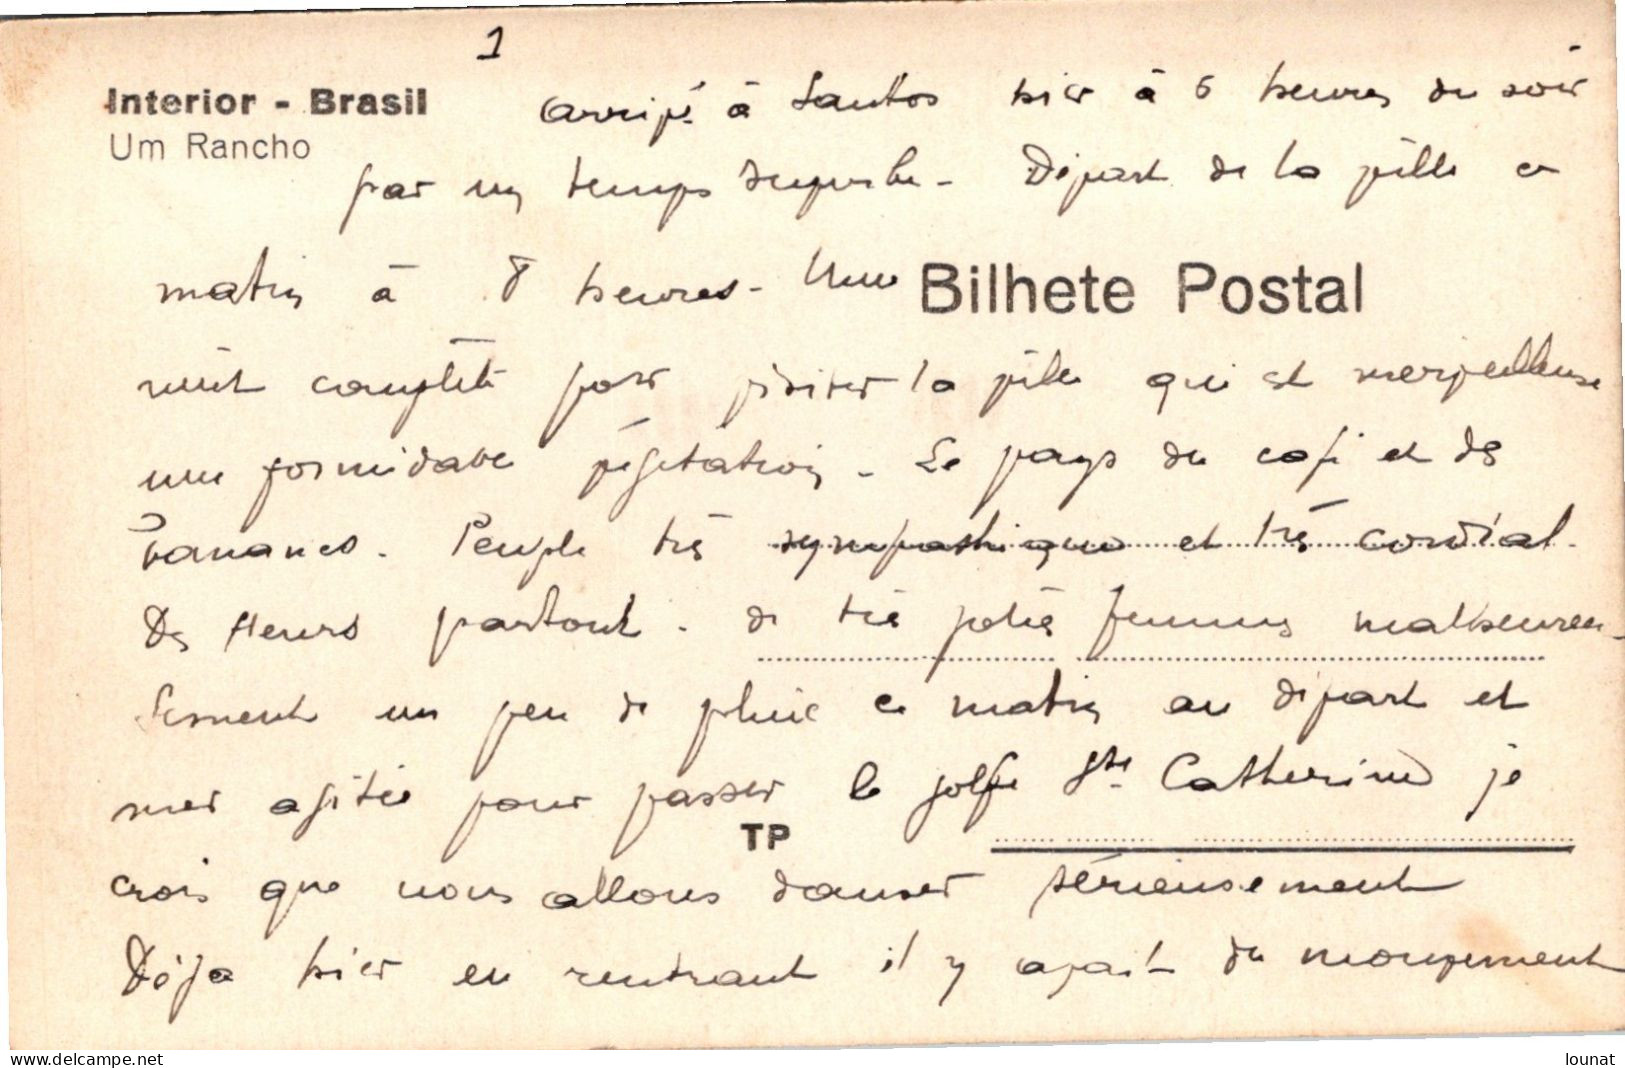 1
Interior - Brasil
Um Rancho
arrivé à Santos hier à 6 heures du soir
par un temps superbe - Départ de la ville ce
matin à 8 heures - Une
Bilhete Postal
nuit complète pour visiter la ville qui est merveilleuse
une formidable végétation - Le pays du café et des
bananes. Peuple très sympathique et très cordial.
Des fleurs partout. de très jolies femmes malheureu-
sement un peu de pluie ce matin au départ et
mer agitée pour passer le golfe Ste Catherine je
TP
crois que nous allons danser sérieusement
Déjà hier en rentrant il y avait du mouvement
www.delcampe.net
lounat